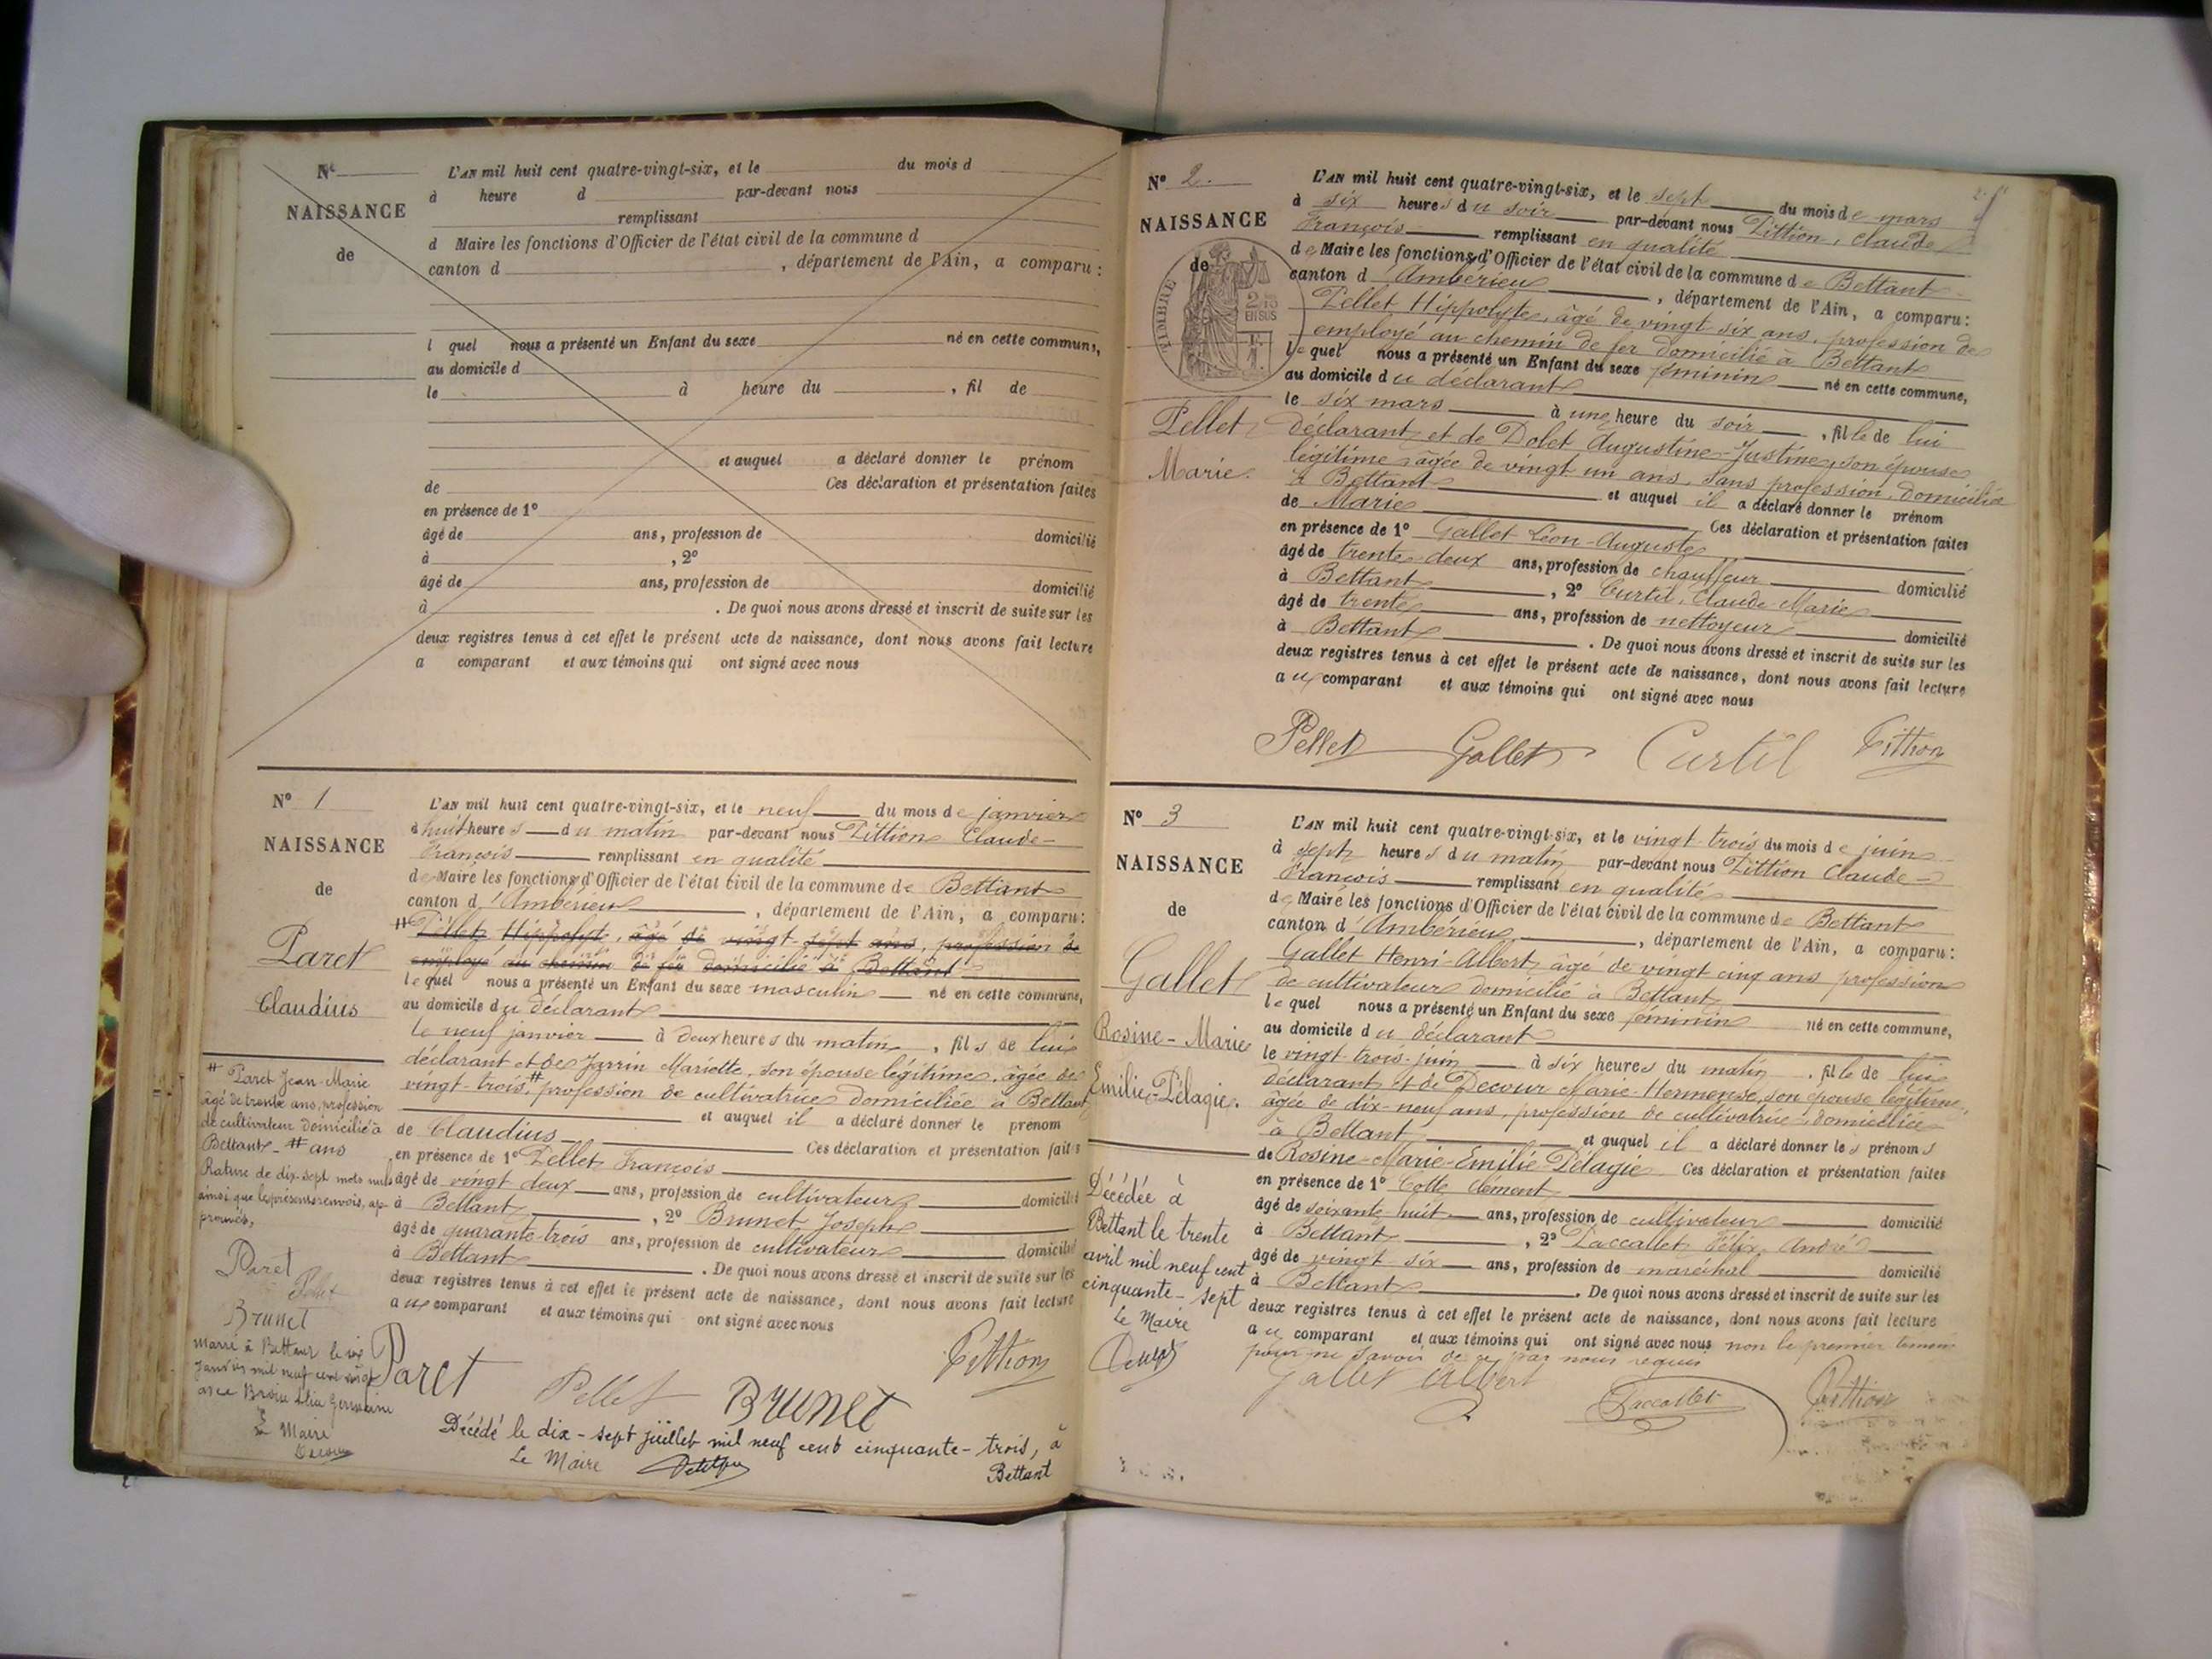 N°
NAISSANCE
de
L'AN mil huit cent quatre-vingt-six, et le du mois d
à heure d par-devant nous
remplissant
d Maire les fonctions d'Officier de l'état civil de la commune d
canton d , département de l'Ain, a comparu :
l quel nous a présenté un Enfant du sexe né en cette commune,
au domicile d
le à heure du , fil de
et auquel a déclaré donner le prénom
de Ces déclaration et présentation faites
en présence de 1°
âgé de ans, profession de domicilié
à , 2°
âgé de ans, profession de domicilié
à . De quoi nous avons dressé et inscrit de suite sur les
deux registres tenus à cet effet le présent acte de naissance, dont nous avons fait lecture
a comparant et aux témoins qui ont signé avec nous
N° 1
NAISSANCE
de
Paret
Claudius
# Paret Jean-Marie
âgé de trente ans, profession
de cultivateur domicilié à
Bettant - # ans
Rature de dix-sept mots nuls
ainsi que les présents renvois, ap-
prouvés,
Paret
Pellet
Brunet
Marié à Bettant le six
janvier mil neuf cent
avec Germaine
Le Maire
L'AN mil huit cent quatre-vingt-six, et le neuf du mois de janvier
à huit heures du matin par-devant nous Pittion Claude-
François remplissant en qualité
de Maire les fonctions d'Officier de l'état civil de la commune de Bettant
canton d'Ambérieu , département de l'Ain, a comparu :
# Pellet Hippolyte, âgé de vingt-sept ans, profession de
employé au chemin de fer domicilié à Bettant
lequel nous a présenté un Enfant du sexe masculin né en cette commune,
au domicile du déclarant
le neuf janvier à deux heures du matin , fils de lui
déclarant et de Jarrin Mariette, son épouse légitime, âgée de
vingt-trois, # profession de cultivatrice domiciliée à Bettant
et auquel il a déclaré donner le prénom
de Claudius Ces déclaration et présentation faites
en présence de 1° Pellet François
âgé de vingt deux ans, profession de cultivateur domicilié
à Bettant , 2° Brunet Joseph
âgé de quarante-trois ans, profession de cultivateur domicilié
à Bettant . De quoi nous avons dressé et inscrit de suite sur les
deux registres tenus à cet effet le présent acte de naissance, dont nous avons fait lecture
au comparant et aux témoins qui ont signé avec nous
Paret Pellet Brunet Pittion
Décédé le dix-sept juillet mil neuf cent cinquante-trois, à
Le Maire Bettant
N° 2.
NAISSANCE
de
TIMBRE
2/10
EN SUS
Pellet
Marie.
L'AN mil huit cent quatre-vingt-six, et le sept du mois de mars
à six heures du soir par-devant nous Pittion, Claude
François remplissant en qualité
de Maire les fonctions d'Officier de l'état civil de la commune de Bettant
canton d'Ambérieu , département de l'Ain, a comparu :
Pellet Hippolyte, âgé de vingt six ans, profession de
employé au chemin de fer domicilié à Bettant
lequel nous a présenté un Enfant du sexe féminin né en cette commune,
au domicile du déclarant
le six mars à une heure du soir , fille de lui
déclarant et de Dolet Augustine-Justine, son épouse
légitime, âgée de vingt un ans, sans profession, domiciliée
à Bettant et auquel il a déclaré donner le prénom
de Marie Ces déclaration et présentation faites
en présence de 1° Gallet Léon-Auguste
âgé de trente deux ans, profession de chauffeur domicilié
à Bettant , 2° Curtil, Claude-Marie
âgé de trente ans, profession de nettoyeur domicilié
à Bettant . De quoi nous avons dressé et inscrit de suite sur les
deux registres tenus à cet effet le présent acte de naissance, dont nous avons fait lecture
au comparant et aux témoins qui ont signé avec nous
Pellet Gallet Curtil Pittion
N° 3
NAISSANCE
de
Gallet
Rosine-Marie
Emilie-Pélagie.
Décédée à
Bettant le trente
avril mil neuf cent
cinquante-sept
Le Maire
L'AN mil huit cent quatre-vingt-six, et le vingt-trois du mois de juin
à sept heures du matin par-devant nous Pittion Claude-
François remplissant en qualité
de Maire les fonctions d'Officier de l'état civil de la commune de Bettant
canton d'Ambérieu , département de l'Ain, a comparu :
Gallet Henri-Albert, âgé de vingt cinq ans profession
de cultivateur domicilié à Bettant
lequel nous a présenté un Enfant du sexe féminin né en cette commune,
au domicile du déclarant
le vingt-trois juin à six heures du matin , fille de lui
déclarant et de Decour Marie-Hermense, son épouse légitime,
âgée de dix-neuf ans, profession de cultivatrice, domiciliée
à Bettant et auquel il a déclaré donner les prénoms
de Rosine-Marie-Emilie-Pélagie Ces déclaration et présentation faites
en présence de 1° Cotte Clément
âgé de soixante-huit ans, profession de cultivateur domicilié
à Bettant , 2° Laccallet, Félix, André
âgé de vingt six ans, profession de maréchal domicilié
à Bettant . De quoi nous avons dressé et inscrit de suite sur les
deux registres tenus à cet effet le présent acte de naissance, dont nous avons fait lecture
au comparant et aux témoins qui ont signé avec nous non le premier témoin
pour ne savoir de ce par nous requis
Gallet Albert Laccallet Pittion